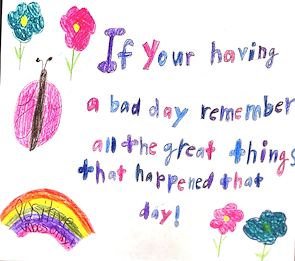 If your having
a bad day remember
all the great things
that happened that
day!
Positive